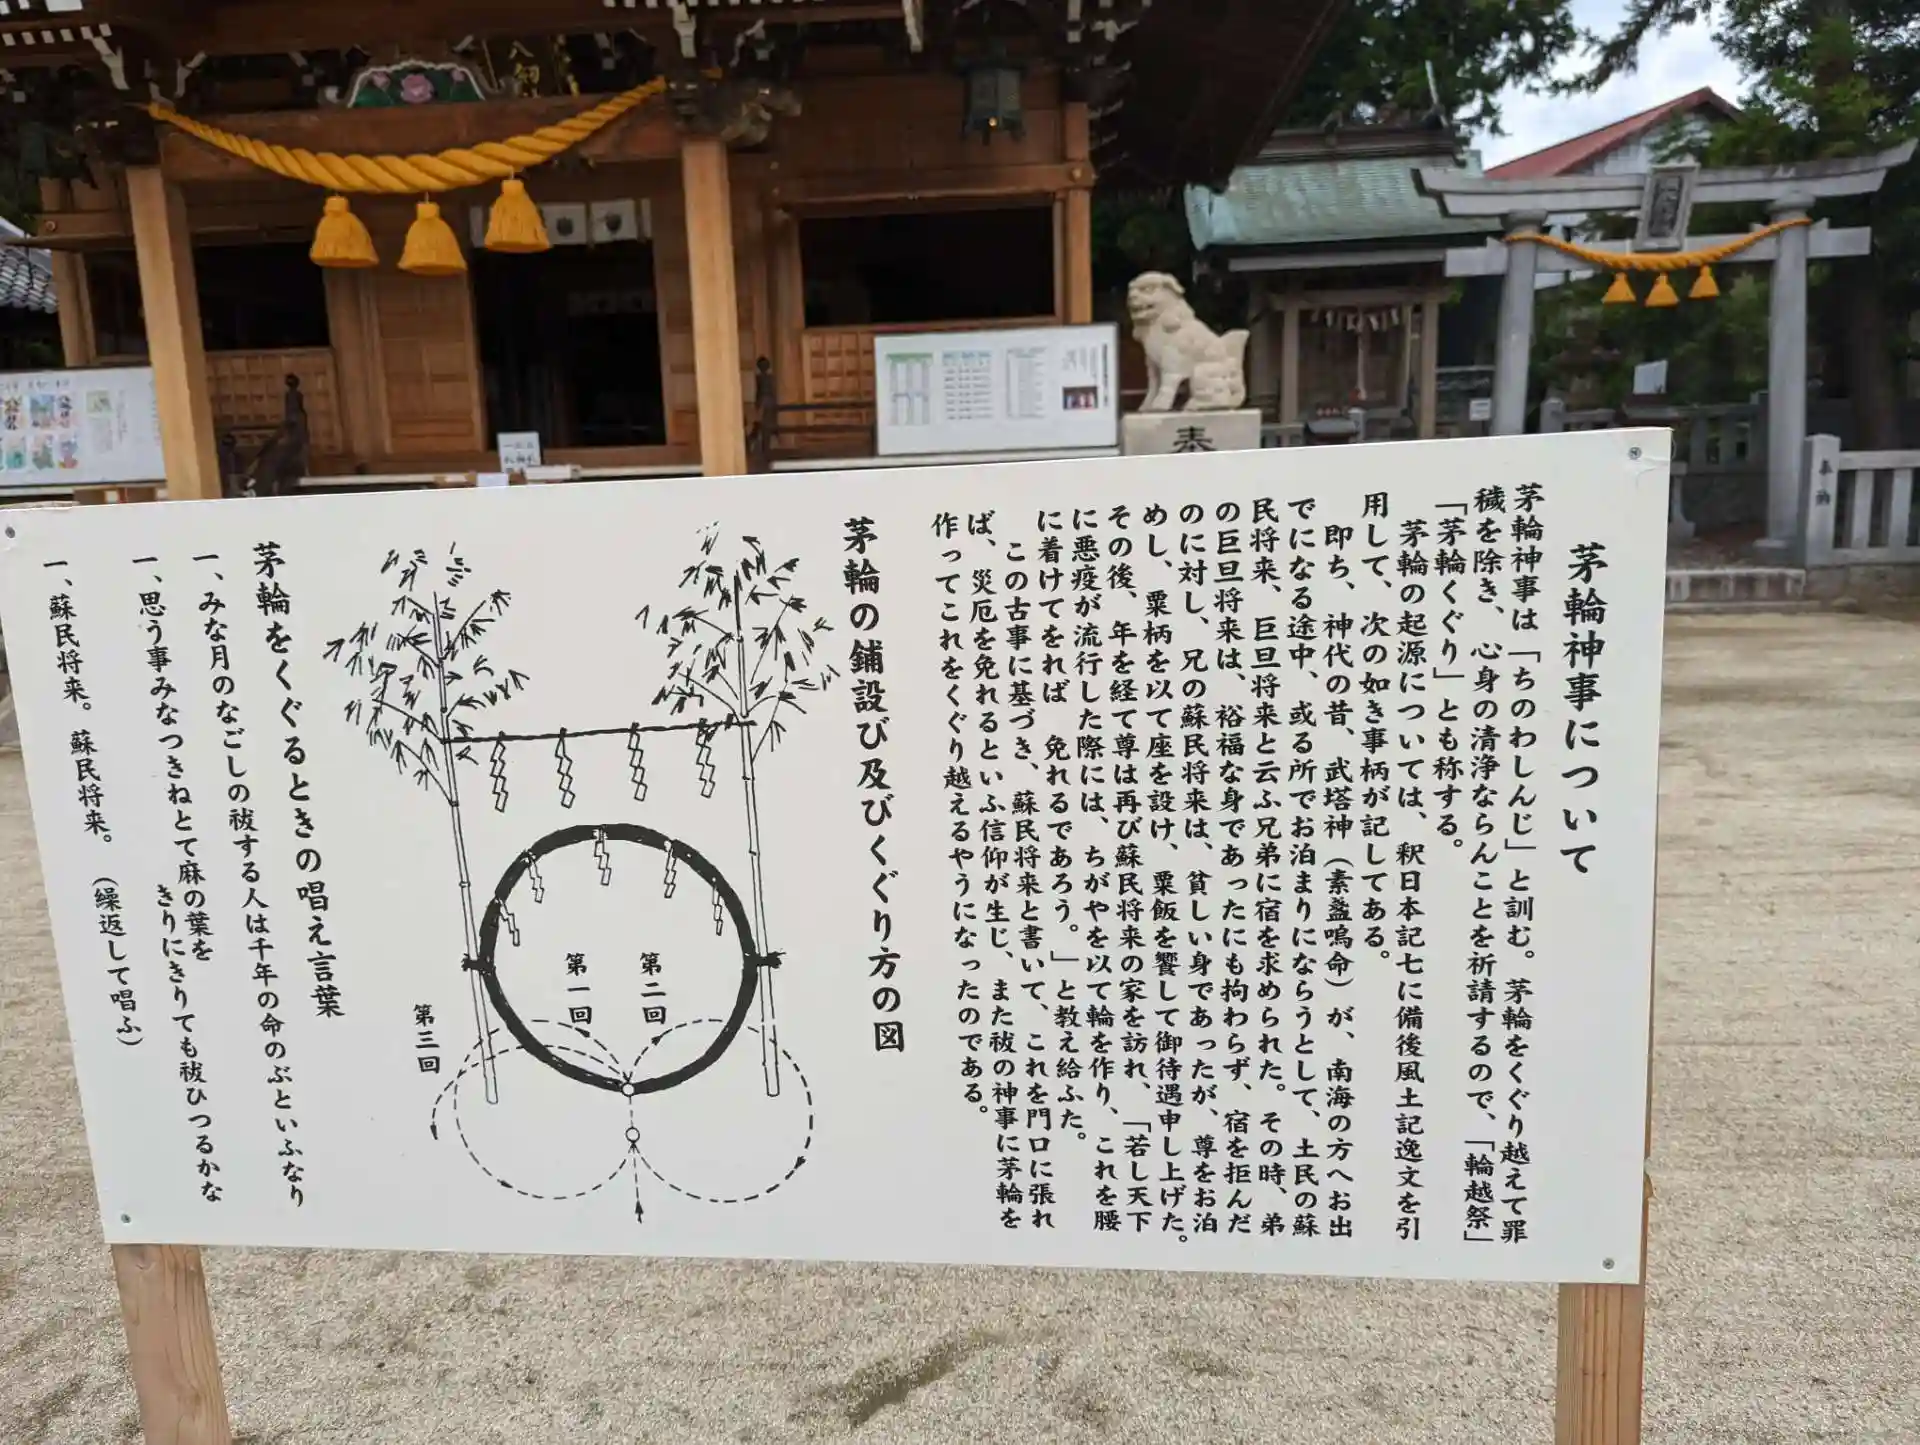 茅輪神事について
茅輪神事は「ちのわしんじ」と訓む。茅輪をくぐり越えて罪
穢を除き、心身の清浄ならんことを祈請するので、「輪越祭」
「茅輪くぐり」とも称する。
茅輪の起源については、釈日本記七に備後風土記逸文を引
用して、次の如き事柄が記してある。
即ち、神代の昔、武塔神（素盞嗚命）が、南海の方へお出
でになる途中、或る所でお泊まりにならうとして、土民の蘇
民将来、巨旦将来と云ふ兄弟に宿を求められた。その時、弟
の巨旦将来は、裕福な身であったにも拘わらず、宿を拒んだ
のに対し、兄の蘇民将来は、貧しい身であったが、尊をお泊
めし、粟柄を以て座を設け、粟飯を饗して御待遇申し上げた。
その後、年を経て尊は再び蘇民将来の家を訪れ、「若し天下
に悪疫が流行した際には、ちがやを以て輪を作り、これを腰
に着けてをれば 免れるであろう。」と教え給ふた。
この古事に基づき、蘇民将来と書いて、これを門口に張れ
ば、災厄を免れるといふ信仰が生じ、また祓の神事に茅輪を
作ってこれをくぐり越えるやうになったのである。
茅輪の鋪設び及びくぐり方の図
第二回
第一回
第三回
茅輪をくぐるときの唱え言葉
一、みな月のなごしの祓する人は千年の命のぶといふなり
一、思う事みなつきねとて麻の葉を
きりにきりても祓ひつるかな
一、蘇民将来。蘇民将来。（繰返して唱ふ）
奉
奉納
八剱